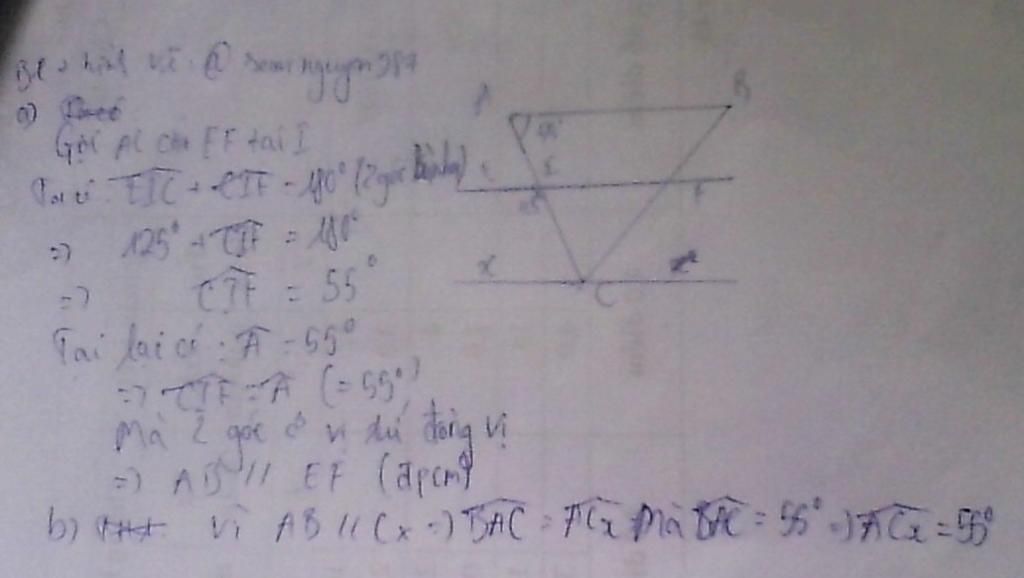 hình vẽ @
a)
Gọi AC cắt EF tại I
Ta có: EIC + CIF = 180° (2 góc kề bù)
=> 125° + CIF = 180°
=> CIF = 55°
Ta lại có: A = 55°
=> CIF = A (= 55°)
Mà 2 góc ở vị trí đồng vị
=> AB // EF (đpcm)
b) Vì AB // Cx => BAC = ACx Mà BAC = 55° => ACx = 55°
A B
I
F
x
C